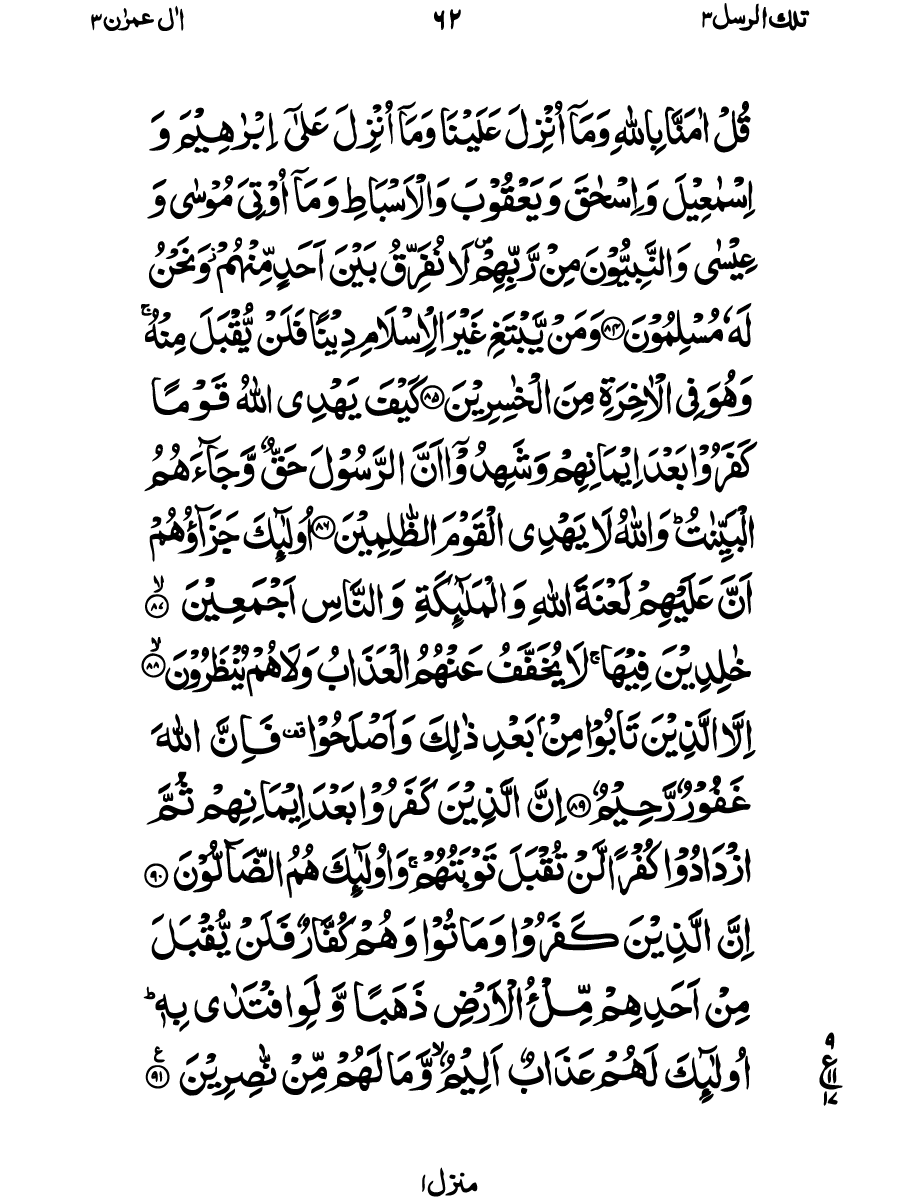 تلك الرسل ٣
٦٢
اٰل عمرٰن ٣
قُلْ اٰمَنَّا بِاللّٰهِ وَمَآ اُنْزِلَ عَلَيْنَا وَمَآ اُنْزِلَ عَلٰٓى اِبْرٰهِيْمَ وَ
اِسْمٰعِيْلَ وَاِسْحٰقَ وَيَعْقُوْبَ وَالْاَسْبَاطِ وَمَآ اُوْتِىَ مُوْسٰى وَ
عِيْسٰى وَالنَّبِيُّوْنَ مِنْ رَّبِّهِمْ ۪ لَا نُفَرِّقُ بَيْنَ اَحَدٍ مِّنْهُمْ ؗ وَنَحْنُ
لَهٗ مُسْلِمُوْنَ ۝۸۴ وَمَنْ يَّبْتَغِ غَيْرَ الْاِسْلَامِ دِيْنًا فَلَنْ يُّقْبَلَ مِنْهُ ۚ
وَهُوَ فِى الْاٰخِرَةِ مِنَ الْخٰسِرِيْنَ ۝۸۵ كَيْفَ يَهْدِى اللّٰهُ قَوْمًا
كَفَرُوْا بَعْدَ اِيْمَانِهِمْ وَشَهِدُوْٓا اَنَّ الرَّسُوْلَ حَقٌّ وَّجَآءَهُمُ
الْبَيِّنٰتُ ؕ وَاللّٰهُ لَا يَهْدِى الْقَوْمَ الظّٰلِمِيْنَ ۝۸۶ اُولٰٓئِكَ جَزَآؤُهُمْ
اَنَّ عَلَيْهِمْ لَعْنَةَ اللّٰهِ وَالْمَلٰٓئِكَةِ وَالنَّاسِ اَجْمَعِيْنَ ۙ ۝۸۷
خٰلِدِيْنَ فِيْهَا ۚ لَا يُخَفَّفُ عَنْهُمُ الْعَذَابُ وَلَا هُمْ يُنْظَرُوْنَ ۙ ۝۸۸
اِلَّا الَّذِيْنَ تَابُوْا مِنْۢ بَعْدِ ذٰلِكَ وَاَصْلَحُوْا قف فَاِنَّ اللّٰهَ
غَفُوْرٌ رَّحِيْمٌ ۝۸۹ اِنَّ الَّذِيْنَ كَفَرُوْا بَعْدَ اِيْمَانِهِمْ ثُمَّ
ازْدَادُوْا كُفْرًا لَّنْ تُقْبَلَ تَوْبَتُهُمْ ۚ وَاُولٰٓئِكَ هُمُ الضَّآلُّوْنَ ۝۹۰
اِنَّ الَّذِيْنَ كَفَرُوْا وَمَاتُوْا وَهُمْ كُفَّارٌ فَلَنْ يُّقْبَلَ
مِنْ اَحَدِهِمْ مِّلْءُ الْاَرْضِ ذَهَبًا وَّلَوِ افْتَدٰى بِهٖ ؕ
اُولٰٓئِكَ لَهُمْ عَذَابٌ اَلِيْمٌ ۙ وَّمَا لَهُمْ مِّنْ نّٰصِرِيْنَ ع ۝۹۱
۹
ع
۱۱
۱۷
منزل ۱